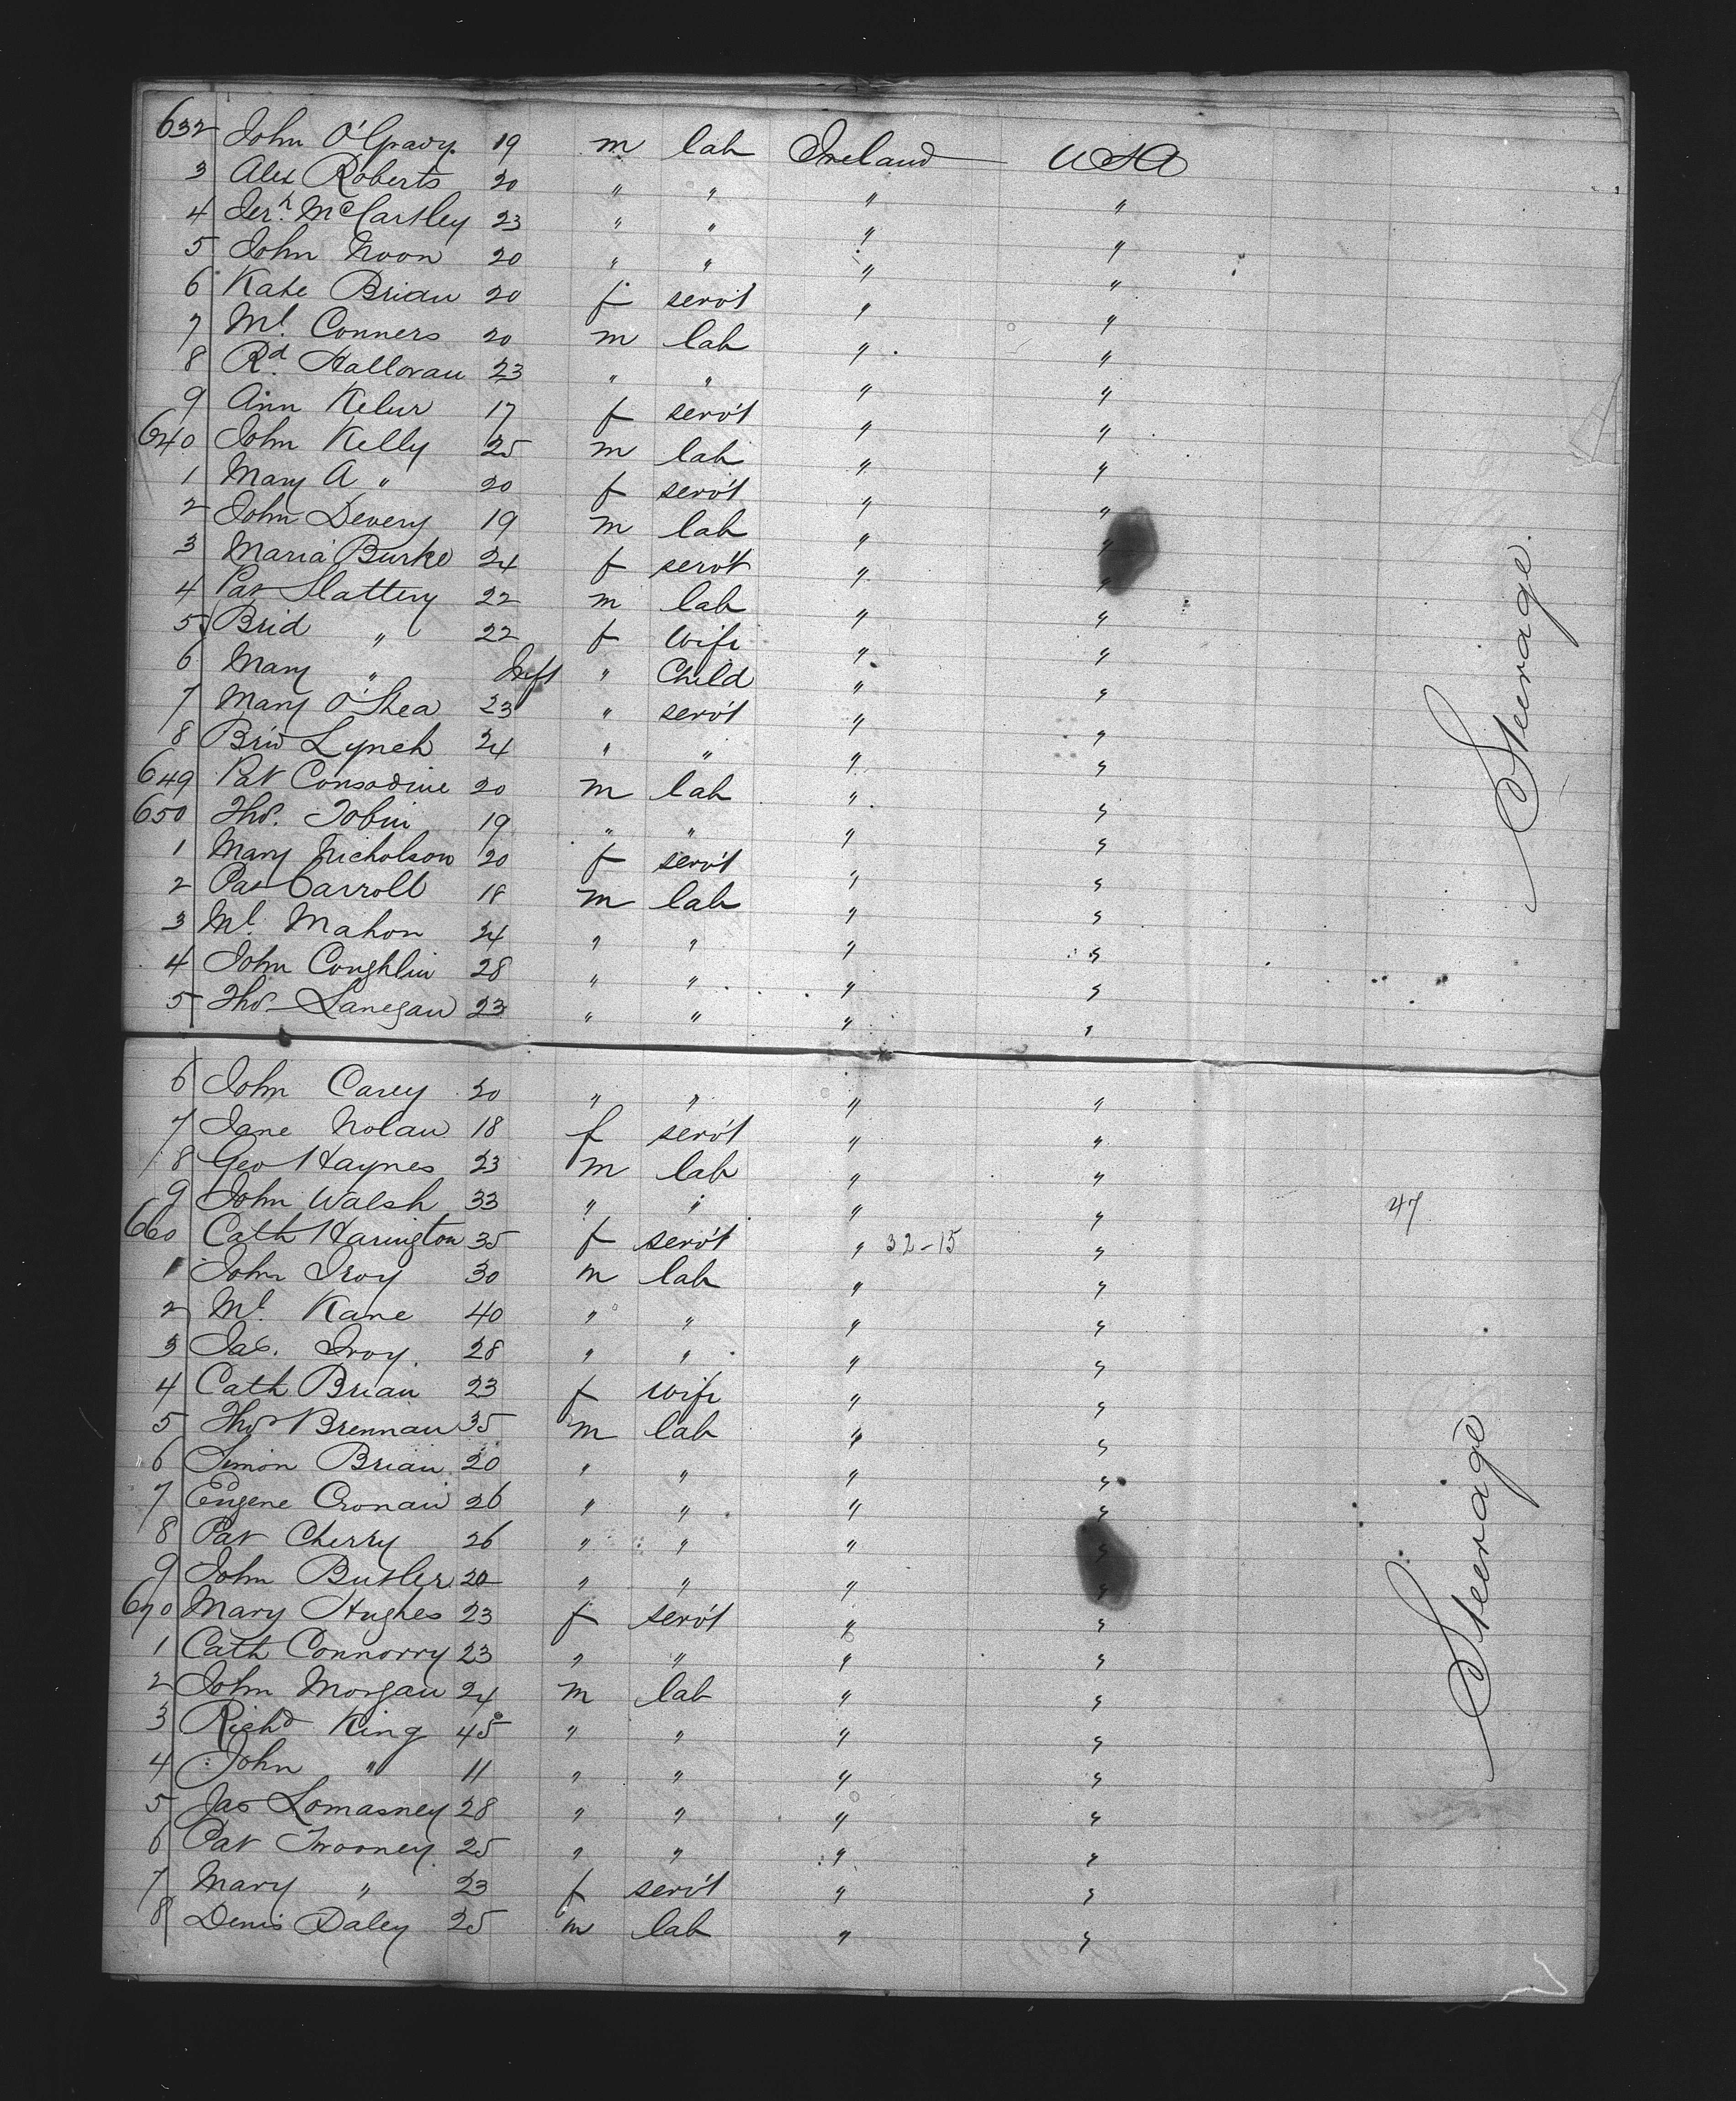 632 John O'Grady 19 m lab Ireland USA
3 Alex Roberts 20 " " " "
4 Jerh. McCartley 23 " " " "
5 John Noon 20 " " " "
6 Kate Brian 20 f servt " "
7 Ml. Conners 20 m lab " "
8 Rd. Halloran 23 " " " "
9 Ann 17 f servt " "
640 John Kelly 25 m lab " "
1 Mary A " 20 f servt " "
2 John Devery 19 m lab " "
3 Maria Burke 24 f servt " "
4 Pat Slattery 22 m lab " "
5 Brid " 22 f wife " "
6 Mary " Inft " Child " "
7 Mary O'Shea 23 " servt " "
8 Brid Lynch 24 " " " "
649 Pat Consodine 20 m lab " "
650 Thos. Tobin 19 " " " "
1 Mary Nicholson 20 f servt " "
2 Pat Carroll 18 m lab " "
3 Ml. Mahon 24 " " " "
4 John Coughlin 28 " " " "
5 Thos Lanegan 23 " " " "
Steerage.
6 John Carey 20 " " " "
7 Jane Nolan 18 f servt " "
8 Geo Haynes 23 m lab " "
9 John Walsh 33 " " " " 47
660 Cath Harington 35 f servt " 32-15 "
1 John Ivoy 30 m lab " "
2 Ml. Kane 40 " " " "
3 Jas. Ivoy. 28 " " " "
4 Cath Brian 23 f wife " "
5 Thos Brennan 35 m lab " "
6 Simon Brian 20 " " " "
7 Eugene Cronan 26 " " " "
8 Pat Cherry 26 " " " "
9 John Butler 20 " " " "
670 Mary Hughes 23 f servt " "
1 Cath Connorry 23 " " " "
2 John Morgan 24 m lab " "
3 Richd King 45 " " " "
4 John " 11 " " " "
5 Jas Lomasney 28 " " " "
6 Pat Twomey 25 " " " "
7 Mary " 23 f servt " "
8 Denis Daley 25 m lab " "
Steerage